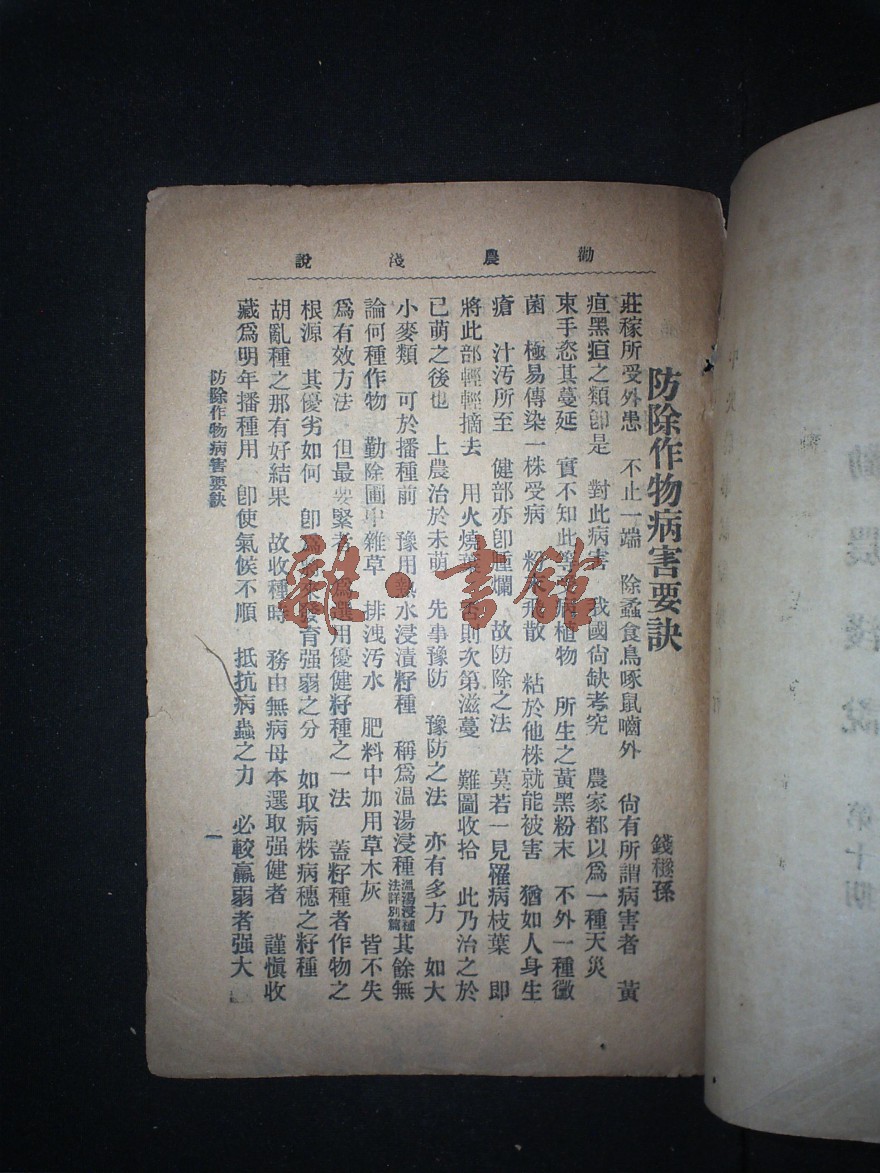 勸農淺說
防除作物病害要訣
錢穟孫
莊稼所受外患　不止一端　除蟊食鳥啄鼠嚙外　尙有所謂病害者　黃
疸黑疸之類卽是　對此病害　我國尙缺考究　農家都以爲一種天災
束手恣其蔓延　實不知此等　植物　所生之黃黑粉末　不外一種黴
菌　極易傳染一株受病　粉末飛散　粘於他株就能被害　猶如人身生
瘡　汁汚所至　健部亦卽腫爛　故防除之法　莫若一見罹病枝葉　卽
將此部輕輕摘去　用火燒　否則次第滋蔓　難圖收拾　此乃治之於
已萌之後也　上農治於未萌　先事豫防　豫防之法　亦有多方　如大
小麥類　可於播種前　豫用熱水浸漬籽種　稱爲溫湯浸種溫湯浸種法詳別篇其餘無
論何種作物　勤除圃中雜草　排洩汚水　肥料中加用草木灰　皆不失
爲有效方法　但最要緊者　爲選用優健籽種之一法　蓋籽種者作物之
根源　其優劣如何　卽爲　來發育强弱之分　如取病株病穗之籽種
胡亂種之那有好結果　故收種時　務由無病母本選取强健者　謹愼收
藏爲明年播種用　卽使氣候不順　抵抗病蟲之力　必較羸弱者强大
防除作物病害要訣
一
雜·書館
勸農淺說　第十期